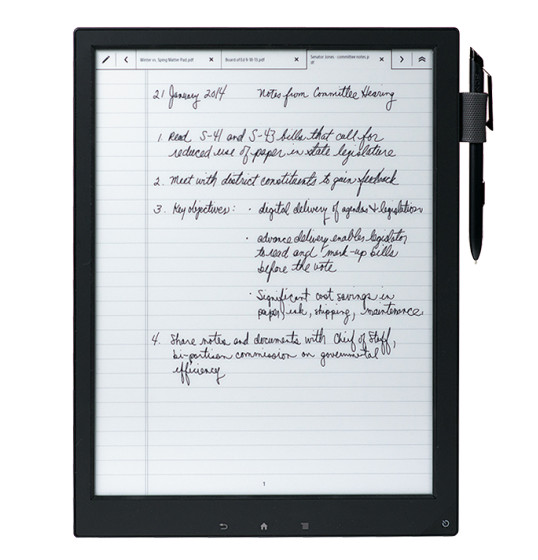 Winter vs. Spring Matter Pad.pdf
Board of Ed 9-18-13.pdf
Senator Jones - committee notes.pdf
21 January 2014 Notes from Committee Hearing
1. Read S-41 and S-43 bills that call for
reduced use of paper in state legislature
2. Meet with district constituents to gain feedback
3. Key objectives: · digital delivery of agendas & legislation
· advance delivery enables legislator
to read and "mark-up bills
before the vote
· Significant cost savings in
paper, ink, shipping, maintenance
4. Share notes and documents with Chief of Staff,
bi-partisan commission on governmental
efficiency
1